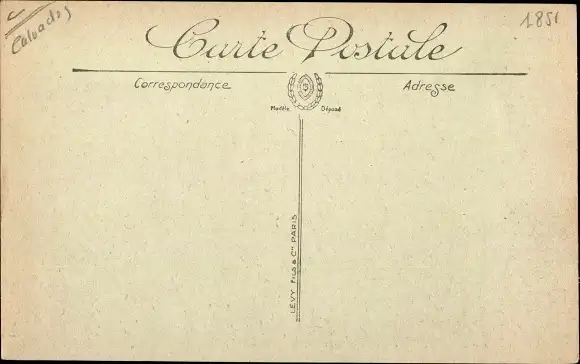 Calvados
1851
Carte Postale
Correspondance
Adresse
Modèle Déposé
LÉVY FILS & Cie PARIS